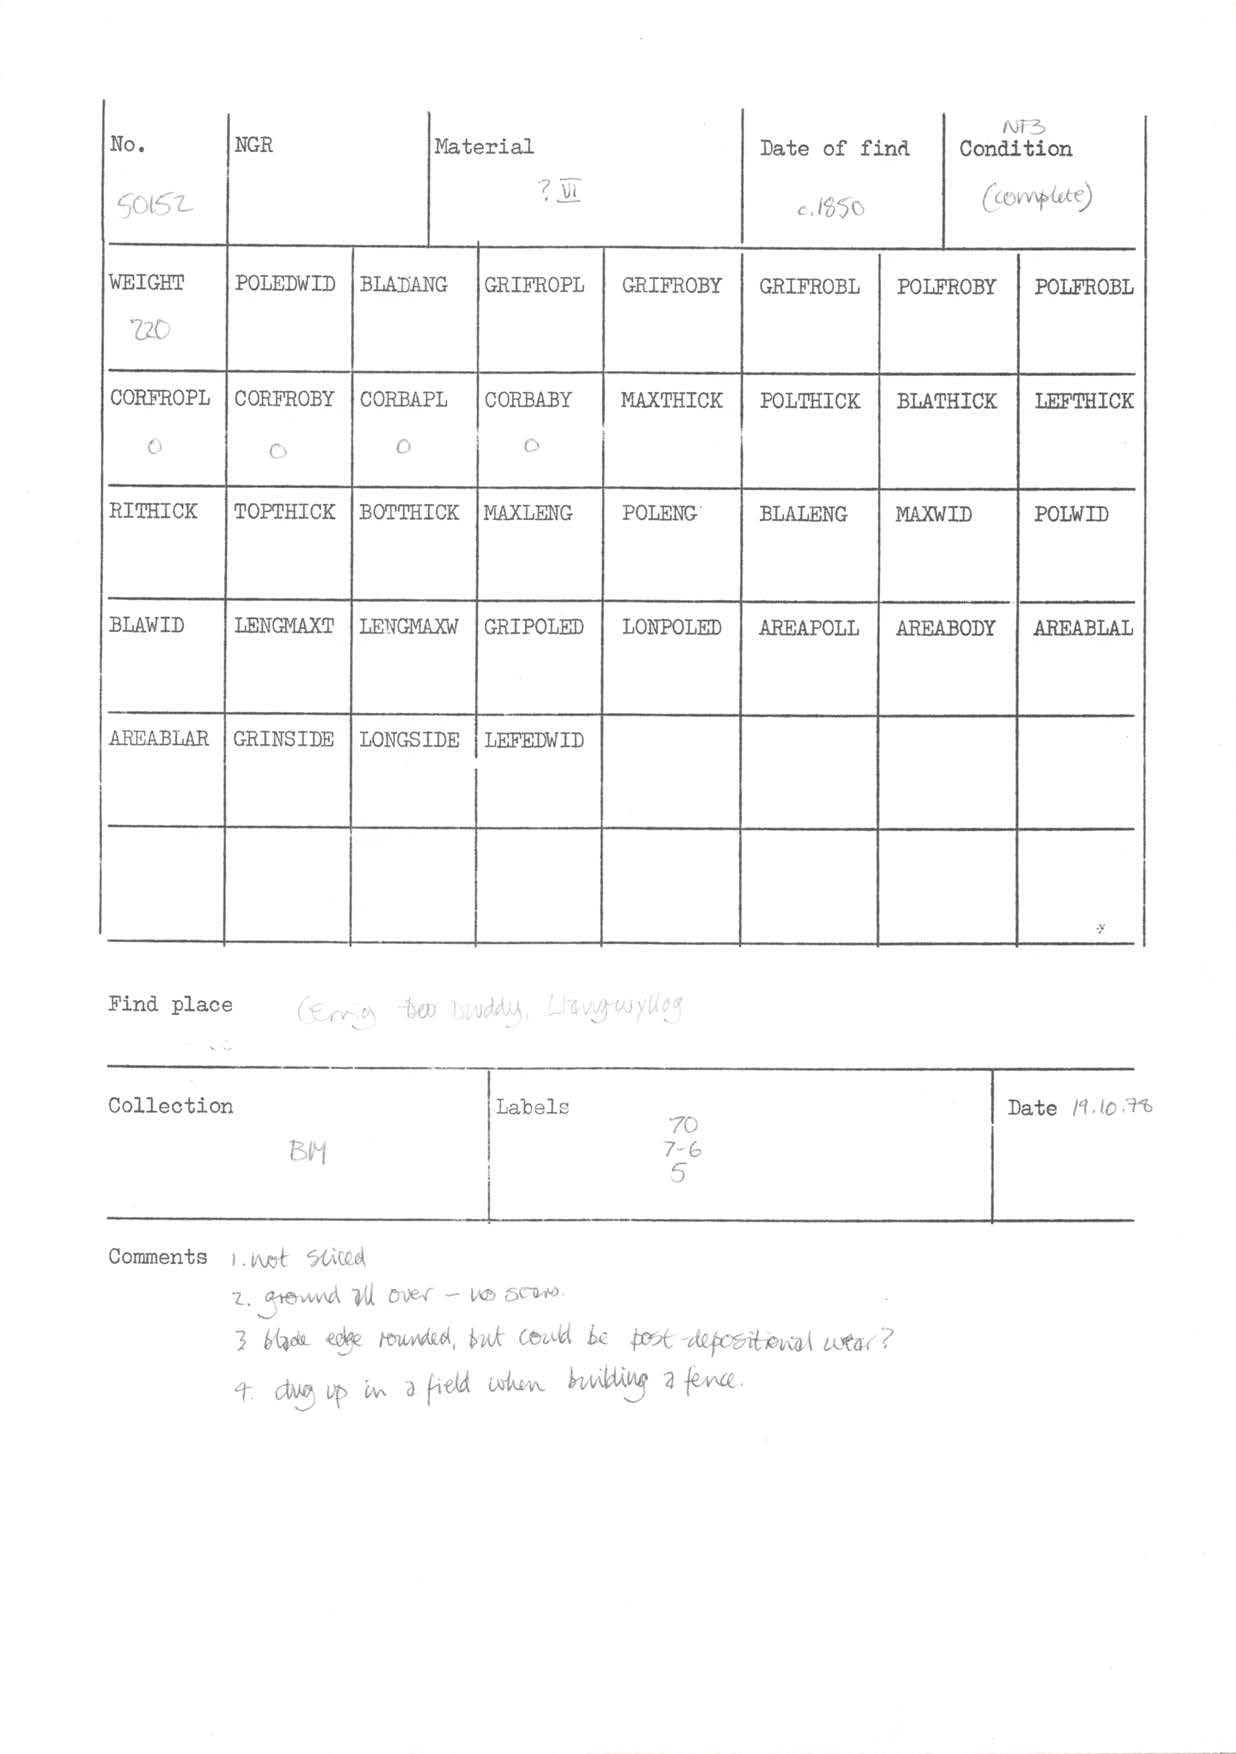 No. NGR Material Date of find NF3 Condition
50152 ? VI c.1850 (complete)
WEIGHT POLEDWID BLADANG GRIFROPL GRIFROBY GRIFROBL POLFROBY POLFROBL
220
CORFROPL CORFROBY CORBAPL CORBABY MAXTHICK POLTHICK BLATHICK LEFTHICK
0 0 0 0
RITHICK TOPTHICK BOTTHICK MAXLENG POLENG BLALENG MAXWID POLWID
BLAWID LENGMAXT LENGMAXW GRIPOLED LONPOLED AREAPOLL AREABODY AREABLAL
AREABLAR GRINSIDE LONGSIDE LEFEDWID
Find place Llangwyllog
Collection Labels Date 19.10.78
BM
70
7-6
5
Comments 1. not sliced
2. ground all over – no scars.
3 blade edge rounded, but could be post-depositional wear?
4. dug up in a field when building a fence.